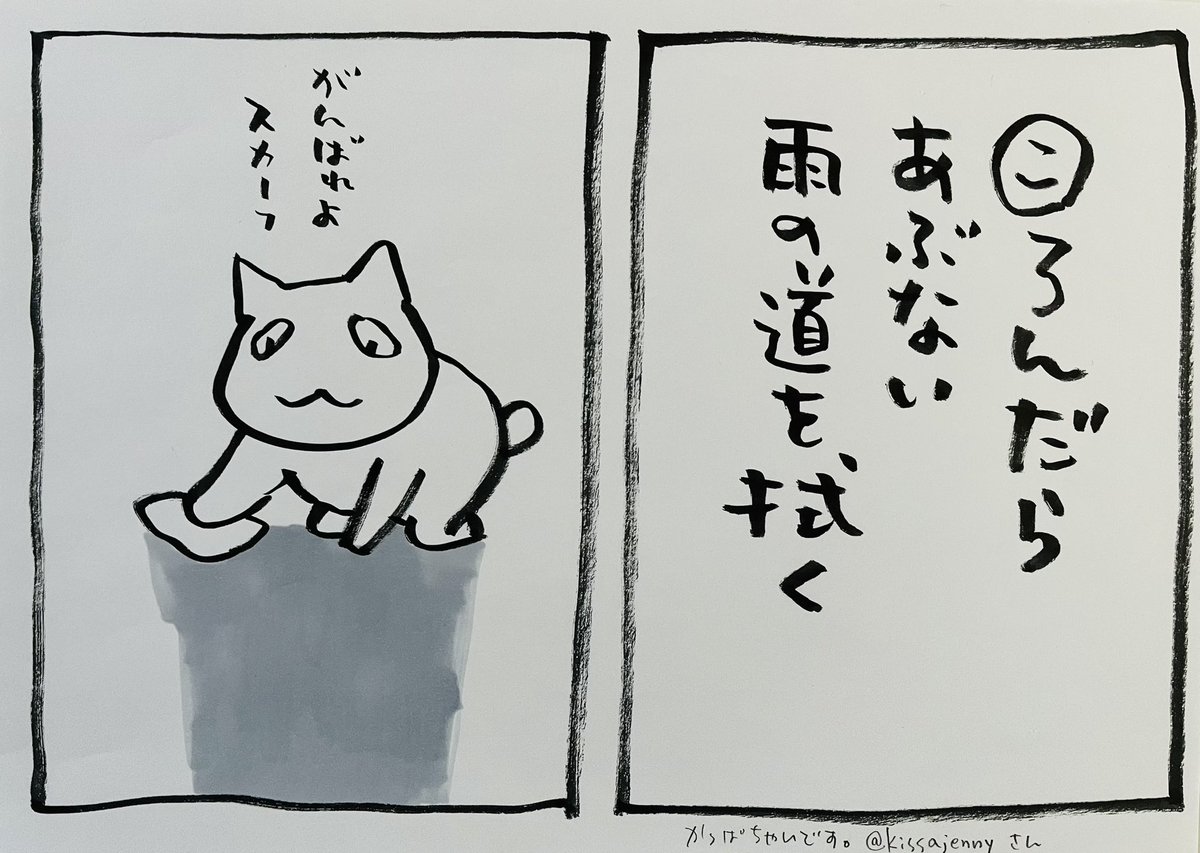 ころんだら
あぶない
雨の道を拭く
がんばれよ
スカーフ
かっぱちゃいです。@kissajenny さん